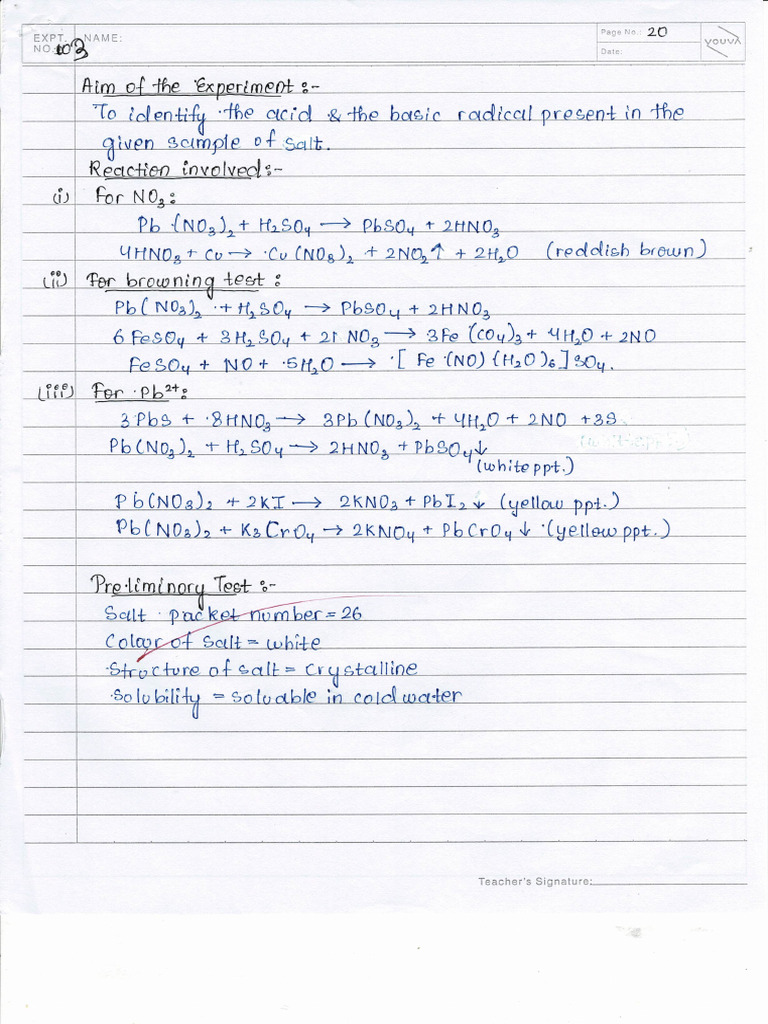 EXPT. NO.: 03 NAME:
Page No.: 20
Date:
YOUVA
Aim of the Experiment :-
To identify the acid & the basic radical present in the
given sample of salt.
Reaction involved :-
(i) For NO₃ :
Pb (NO₃)₂ + H₂SO₄ → PbSO₄ + 2HNO₃
4HNO₃ + Cu → Cu (NO₃)₂ + 2NO₂↑ + 2H₂O (reddish brown)
(ii) For browning test :
Pb(NO₃)₂ + H₂SO₄ → PbSO₄ + 2HNO₃
6 FeSO₄ + 3H₂SO₄ + 2H NO₃ → 3Fe (CO₄)₃ + 4H₂O + 2NO
FeSO₄ + NO + 5H₂O → [ Fe (NO) (H₂O)₆ ] SO₄.
(iii) For Pb²⁺ :
3 Pbs + 8HNO₃ → 3Pb (NO₃)₂ + 4H₂O + 2NO + 3S
Pb(NO₃)₂ + H₂SO₄ → 2HNO₃ + PbSO₄↓
(white ppt.)
Pb(NO₃)₂ + 2KI → 2KNO₃ + PbI₂ ↓ (yellow ppt.)
Pb(NO₃)₂ + K₃CrO₄ → 2KNO₄ + PbCrO₄ ↓ (yellow ppt.)
Preliminory Test :-
Salt packet number = 26
Colour of salt = white
Structure of salt = Crystalline
Solubility = soluable in cold water
Teacher's Signature: